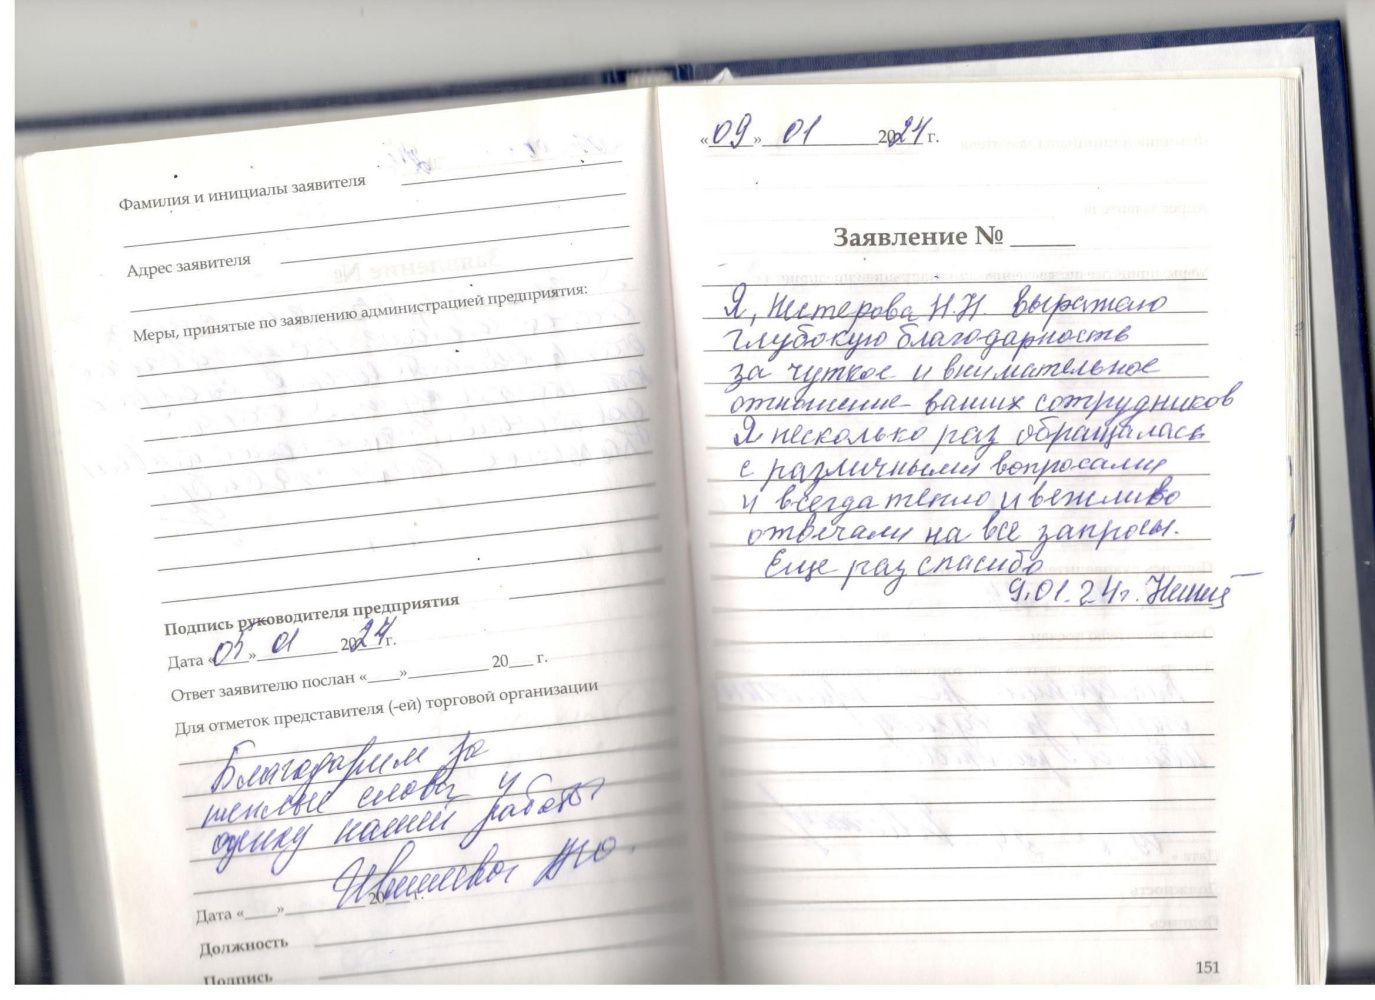 Фамилия и инициалы заявителя
Адрес заявителя
Меры, принятые по заявлению администрацией предприятия:
Подпись руководителя предприятия
Дата «05» 01 2024 г.
Ответ заявителю послан «____»__________ 20___ г.
Для отметок представителя (-ей) торговой организации
Благодарим за
теплые слова и
оценку нашей работы
Дата «____»__________ 20___ г.
Должность
Подпись
«09» 01 2024 г.
Заявление № _____
Я, Нестерова Н.Н. выражаю
глубокую благодарность
за чуткое и внимательное
отношение ваших сотрудников
Я несколько раз обращалась
с различными вопросами
и всегда тепло и вежливо
отвечали на все запросы.
Еще раз спасибо
9.01.24г.
151